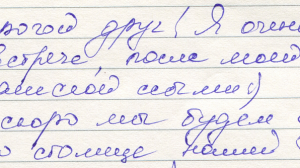 рогой друг! Я очень
встрече, после моей
анской ссылки:)
скоро мы будем
о столице нашей